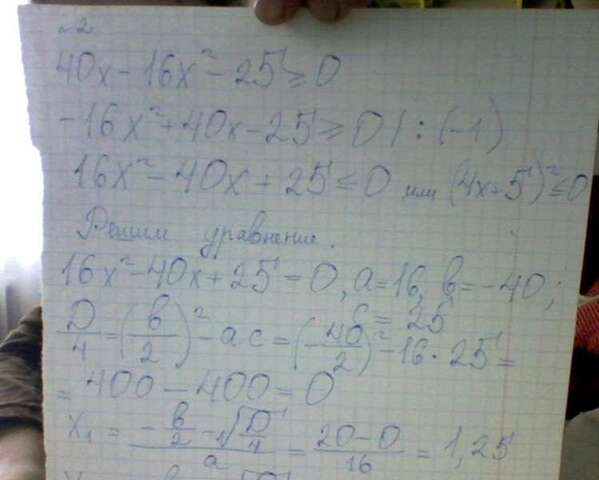 №2
40x - 16x² - 25 ≥ 0
-16x² + 40x - 25 ≥ 0 / : (-1)
16x² - 40x + 25 ≤ 0 или (4x+5)² ≤ 0
Решим уравнение.
16x² - 40x + 25 = 0, a = 16, b = -40;
c = 25
D/4 = (b/2)² - ac = (-40/2)² - 16 · 25 =
= 400 - 400 = 0
x₁ = (-b/2 - √(D/4))/a = (20 - 0)/16 = 1,25